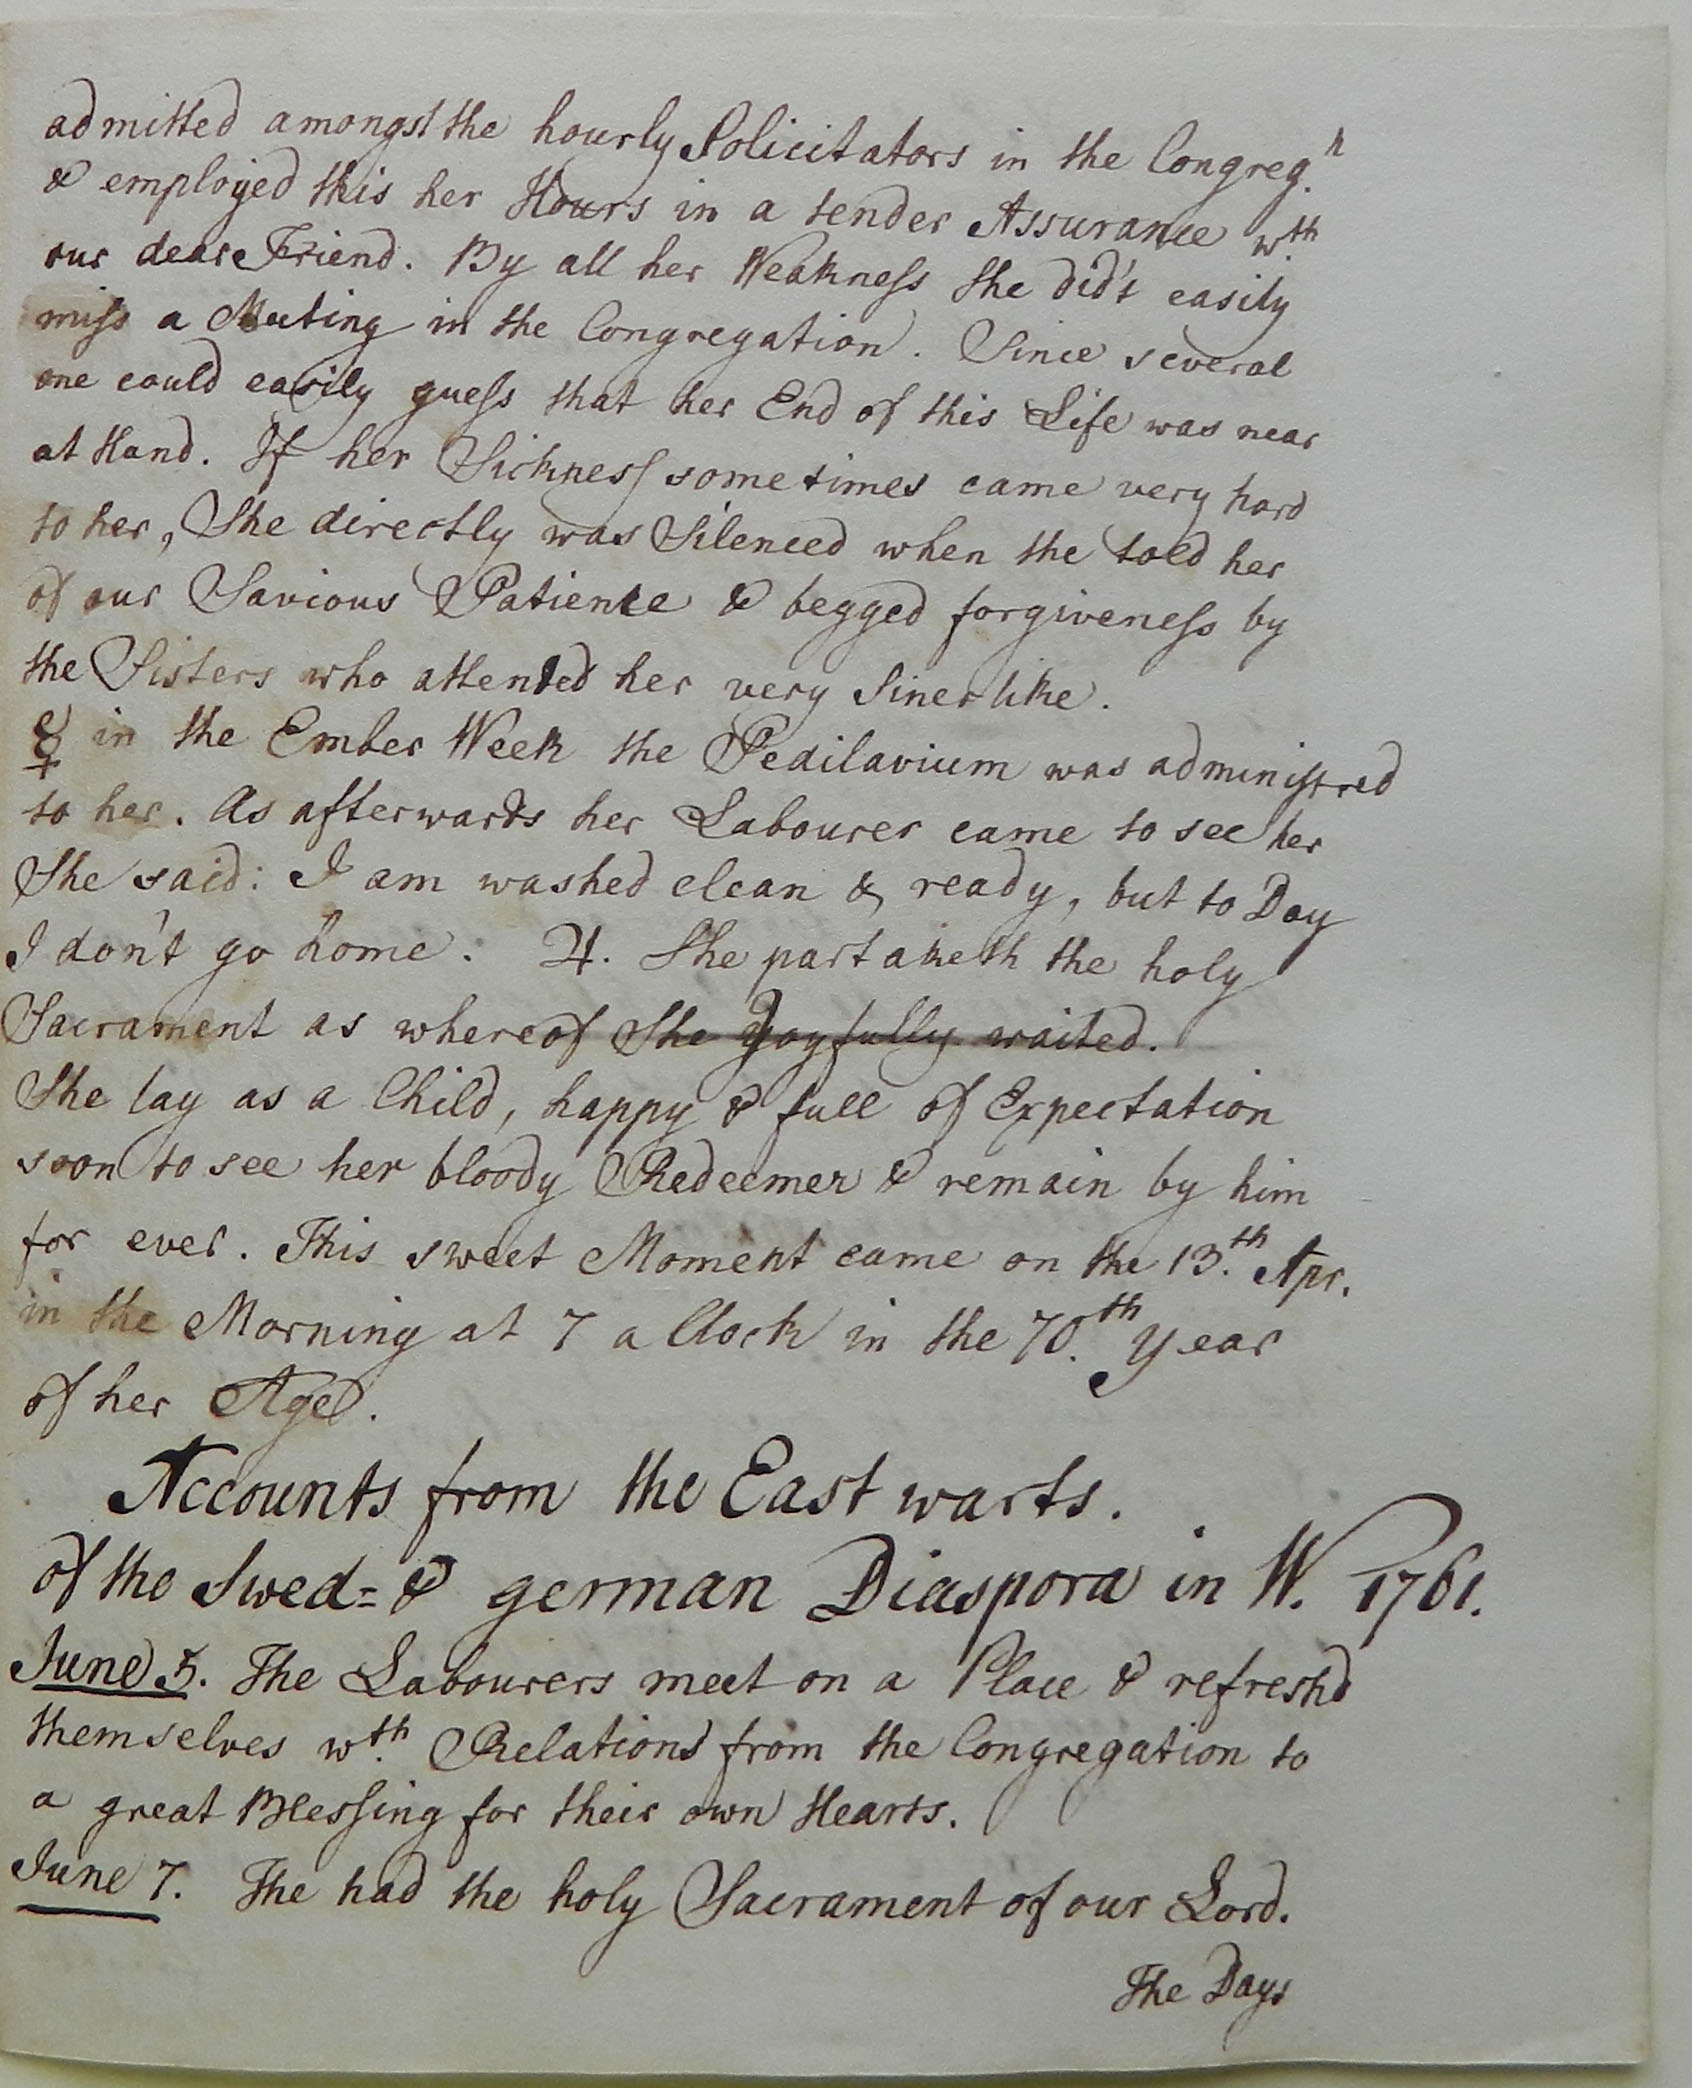 admitted amongst the hourly Solicitators in the Congreg.n
& employed this her Hours in a tender Assurance w.th
our dear Friend. By all her Weakness She did't easily
miss a Meeting in the Congregation. Since several
one could easily guess that her End of this Life was near
at Hand. If her Sickness sometimes came very hard
to her, She directly was Silenced when the told her
of our Saviours Patience & begged forgiveness by
the Sisters who attended her very Sinerlike.
☿ in the Ember Week the Pedilavium was administred
to her. As afterwards her Labourer came to see her
She said: I am washed clean & ready, but to Day
I don't go home. ♃. She partaketh the holy
Sacrament as whereof She Joyfully waited.
She lay as a Child, happy & full of Expectation
soon to see her bloody Redeemer & remain by him
for ever. This sweet Moment came on the 13.th Apr.
in the Morning at 7 a Clock in the 70.th Year
of her Age.
Accounts from the East warts.
of the Swed= & german Diaspora in W. 1761.
June 5. The Labourers meet on a Place & refresh'd
themselves w.th Relations from the Congregation to
a great Blessing for their own Hearts.
June 7. The had the holy Sacrament of our Lord.
The Days